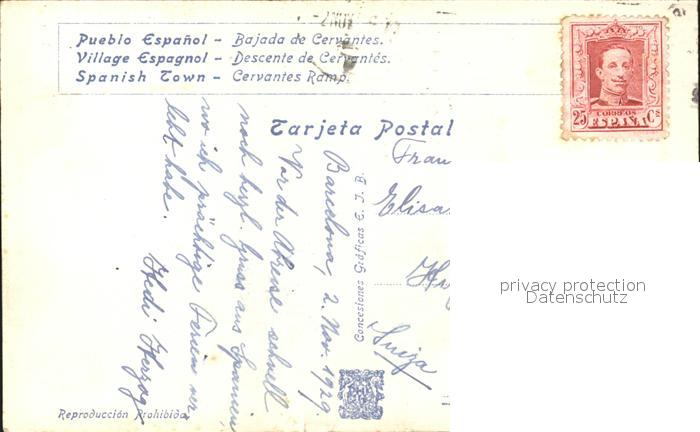 Pueblo Español – Bajada de Cervantes.
Village Espagnol – Descente de Cervantés.
Spanish Town – Cervantes Ramp.
25 Cs
CORREOS
ESPAÑA
Tarjeta Postal
Barcelona, 2. Nov. 1929.
Vor der Abreise schnell
noch herzl. Gruss aus Spanien,
wo ich prächtige Ferien ver-
lebt habe.
Hedi Herzog
Frau
Elisa
Suiza
Concesiones Gráficas E. I. B.
privacy protection
Datenschutz
Reproducción Prohibida